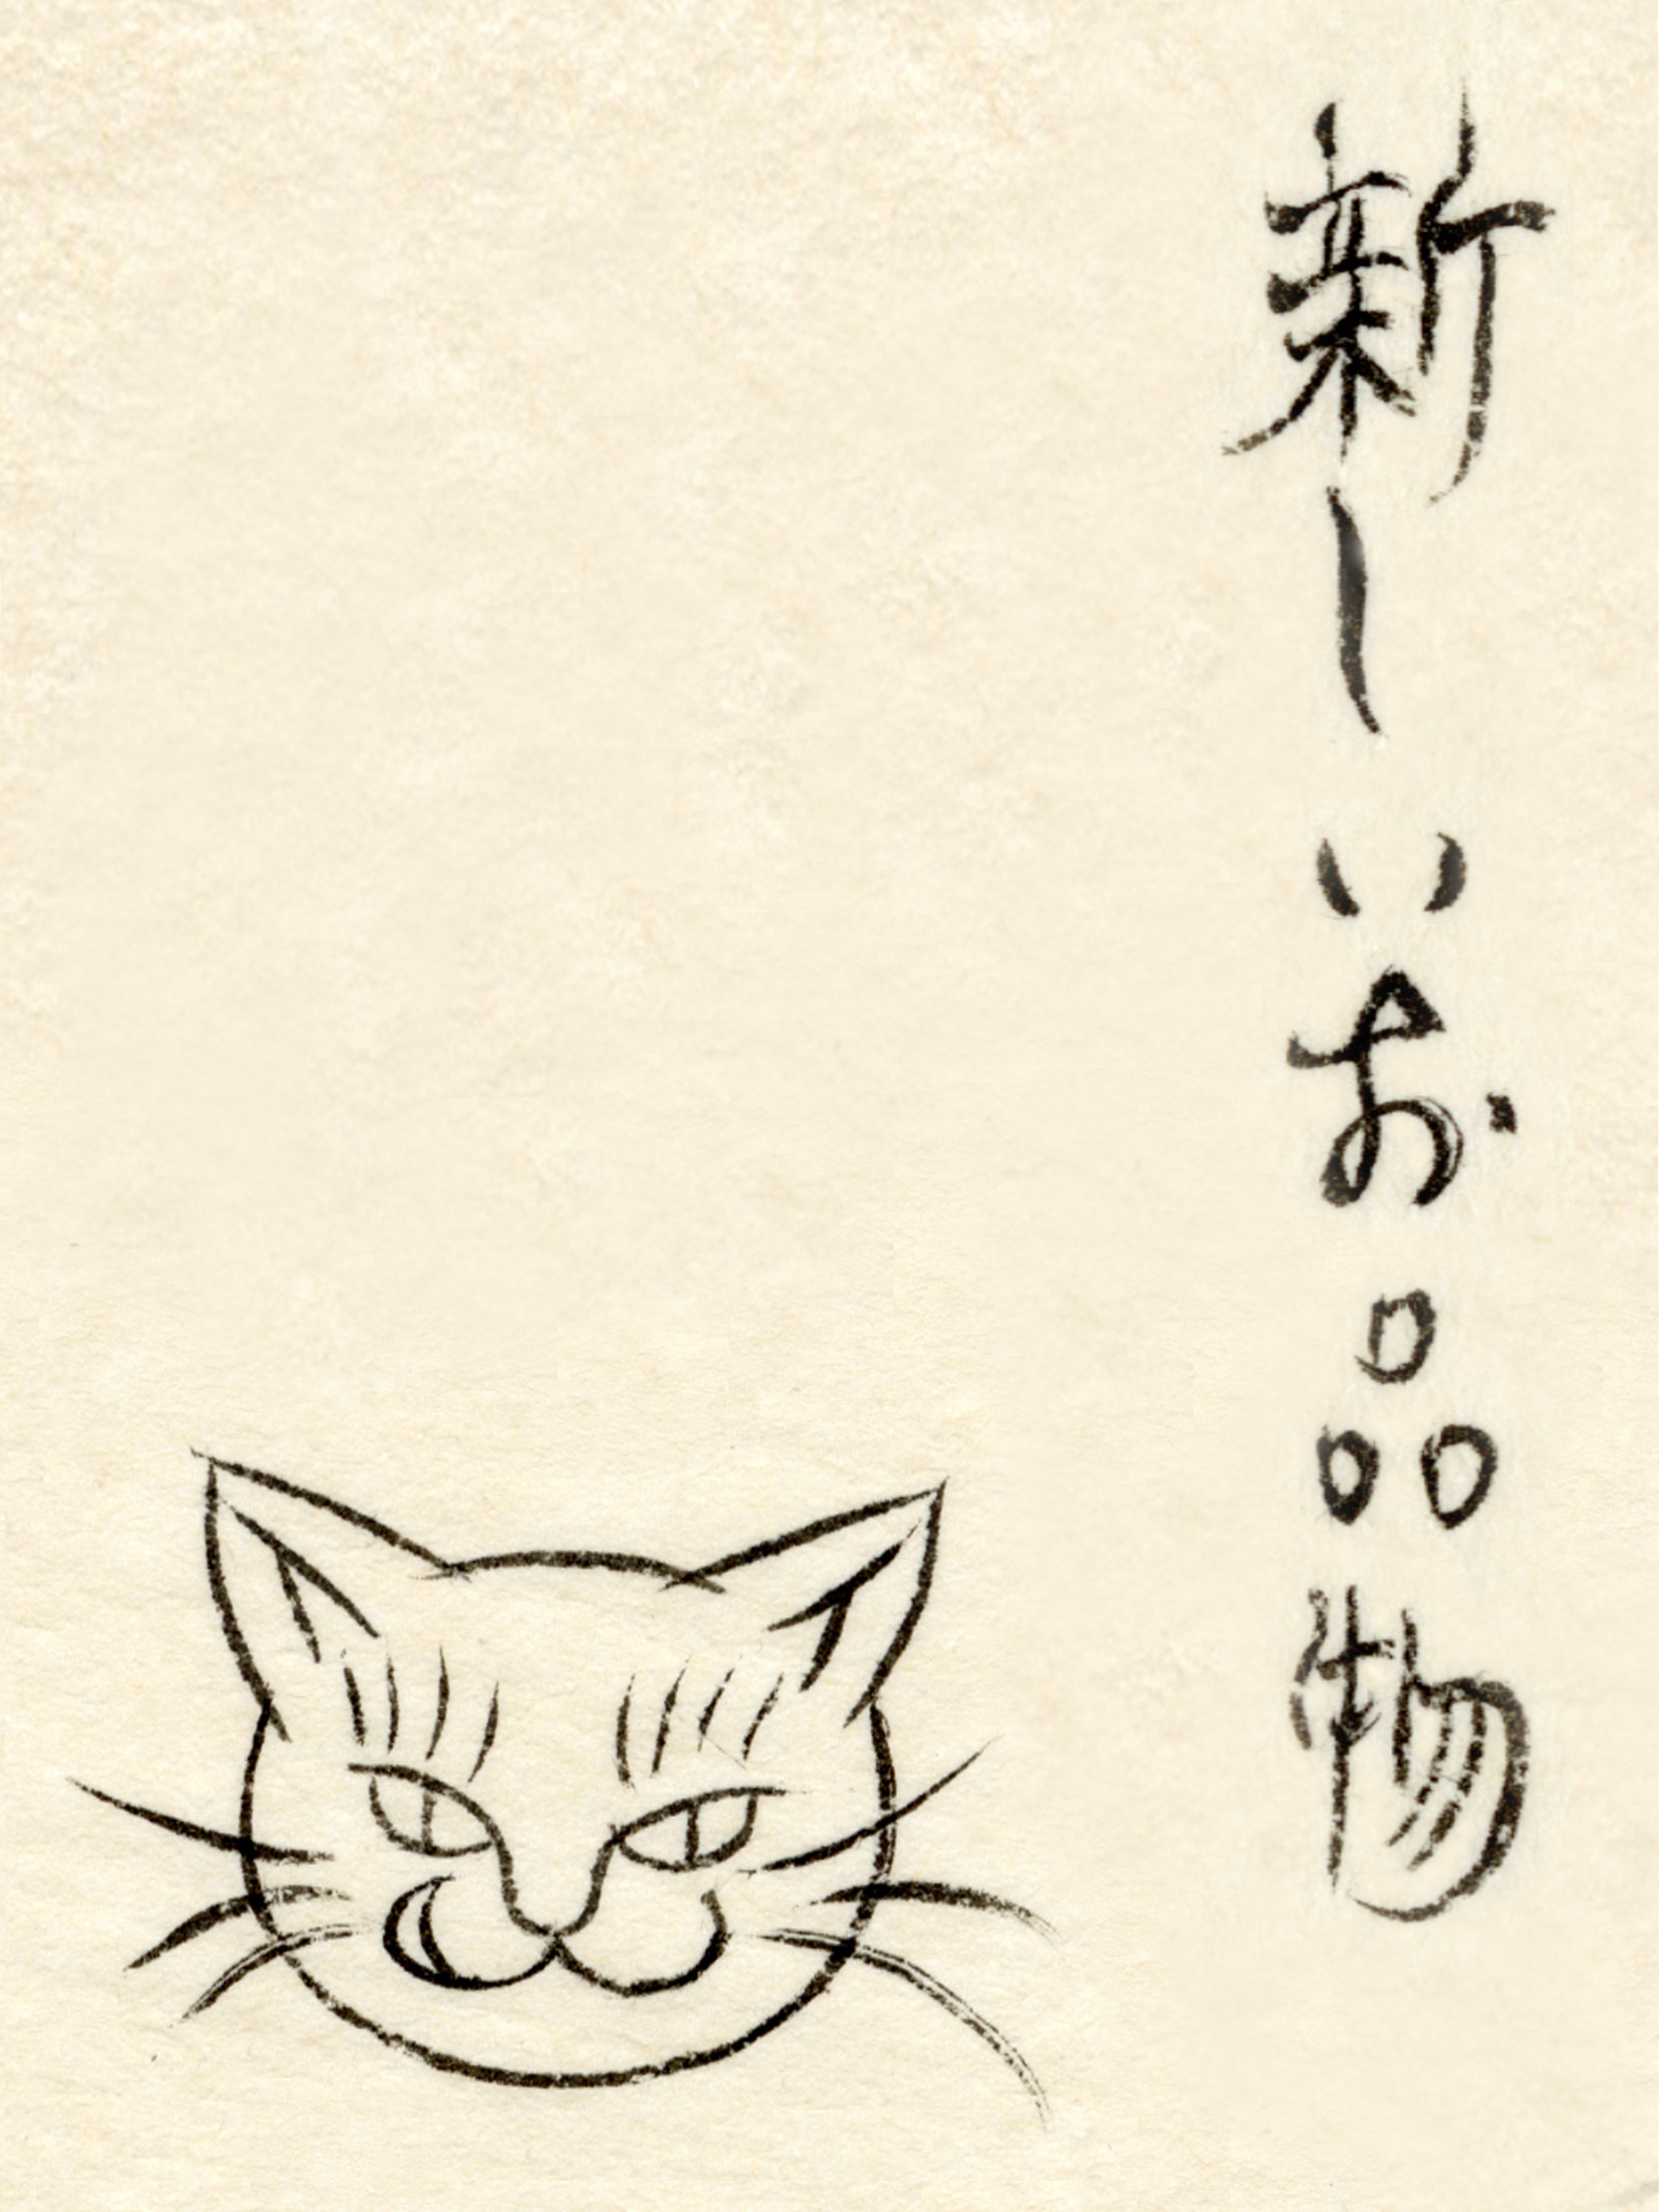 新しいお品物